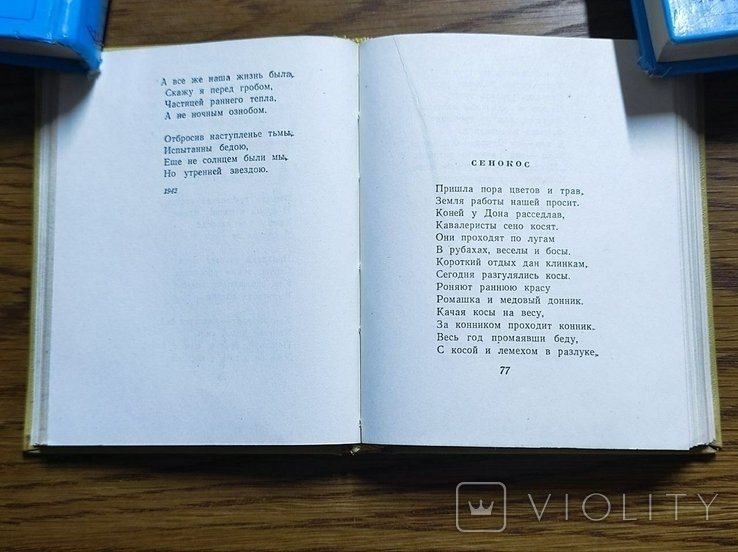 А все же наша жизнь была,
Скажу я перед гробом,
Частицей раннего тепла,
А не ночным ознобом.
Отбросив наступленье тьмы,
Испытанны бедою,
Еще не солнцем были мы,
Но утренней звездою.
1942
СЕНОКОС
Пришла пора цветов и трав,
Земля работы нашей просит.
Коней у Дона расседлав,
Кавалеристы сено косят.
Они проходят по лугам
В рубахах, веселы и босы.
Короткий отдых дан клинкам,
Сегодня разгулялись косы.
Роняют раннюю красу
Ромашка и медовый донник.
Качая косы на весу,
За конником проходит конник.
Весь год промаявши беду,
С косой и лемехом в разлуке,
77
VIOLITY